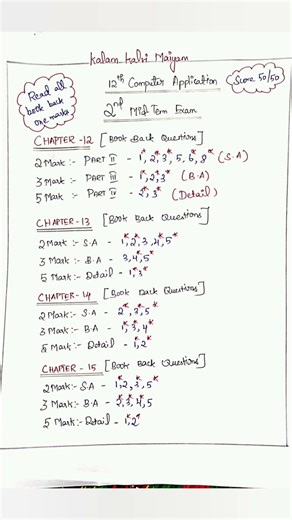 Kalam Kalvi Maiyam
12th Computer Application
Read all book back one marks
Score 50/50
2nd Mid Term Exam
CHAPTER -12 [Book Back Questions]
2 Mark :- PART II - 1*, 2*, 3*, 5, 6, 8* (S.A)
3 Mark :- PART III - 1*, 2*, 3* (B.A)
5 Mark :- PART IV - 2*, 3* (Detail)
CHAPTER -13 [Book Back Questions]
2 Mark :- S.A - 1*, 2*, 3, 4*, 5*
3 Mark :- B.A - 3, 4*, 5*
5 Mark :- Detail - 1*, 3*
CHAPTER -14 [Book Back Questions]
2 Mark :- S.A - 2*, 3*, 5*
3 Mark :- B.A - 1*, 3*, 4*
5 Mark :- Detail - 1*, 2*
CHAPTER - 15 [Book Back Questions]
2 Mark :- S.A - 1, 2*, 3*, 5*
3 Mark :- B.A - 2*, 3*, 4*, 5
5 Mark :- Detail - 1*, 2*